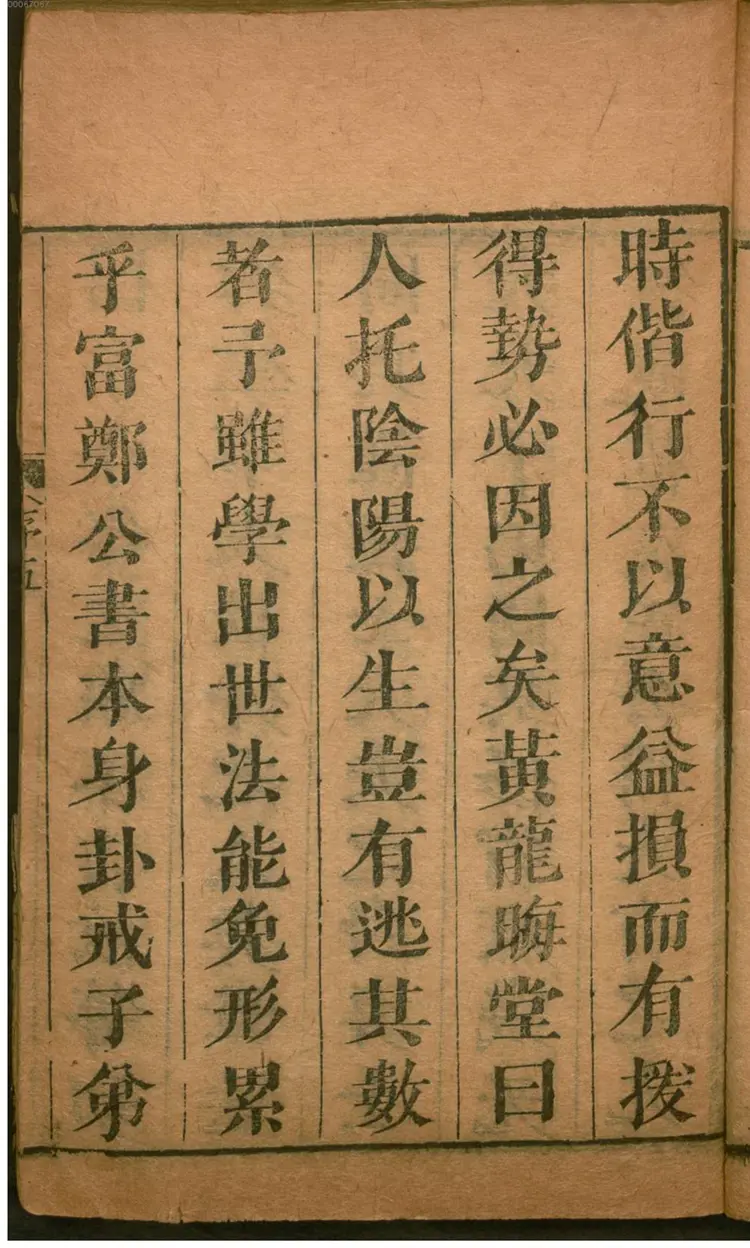 00067067
時偕行不以意益損而有撥
得勢必因之矣黃龍晦堂曰
人托陰陽以生豈有逃其數
者予雖學出世法能免形累
乎富鄭公書本身卦戒子弟
序五